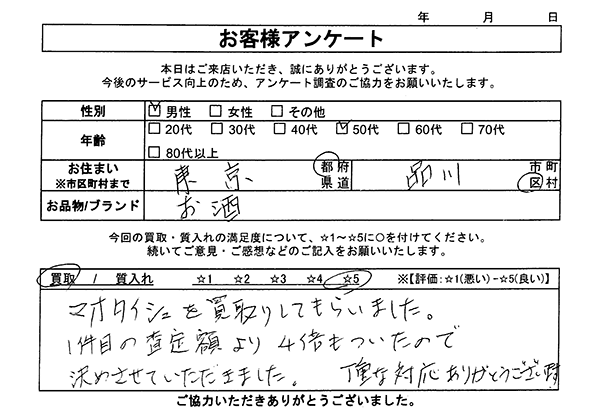 年 月 日
お客様アンケート
本日はご来店いただき、誠にありがとうございます。
今後のサービス向上のため、アンケート調査のご協力をお願いいたします。
性別 ☑男性 □女性 □その他
年齢 □20代 □30代 □40代 ☑50代 □60代 □70代
□80代以上
お住まい 東京 都府 品川 市町
※市区町村まで 県道 区村
お品物/ブランド お酒
今回の買取・質入れの満足度について、☆1～☆5に○を付けてください。
続いてご意見・ご感想などのご記入をお願いいたします。
買取 / 質入れ ☆1 ☆2 ☆3 ☆4 ☆5 ※【評価:☆1(悪い)-☆5(良い)】
マオタイシュを買取りしてもらいました。
1件目の査定額より4倍もついたので
決めさせていただきました。丁重な対応ありがとうございます
ご協力いただきありがとうございました。